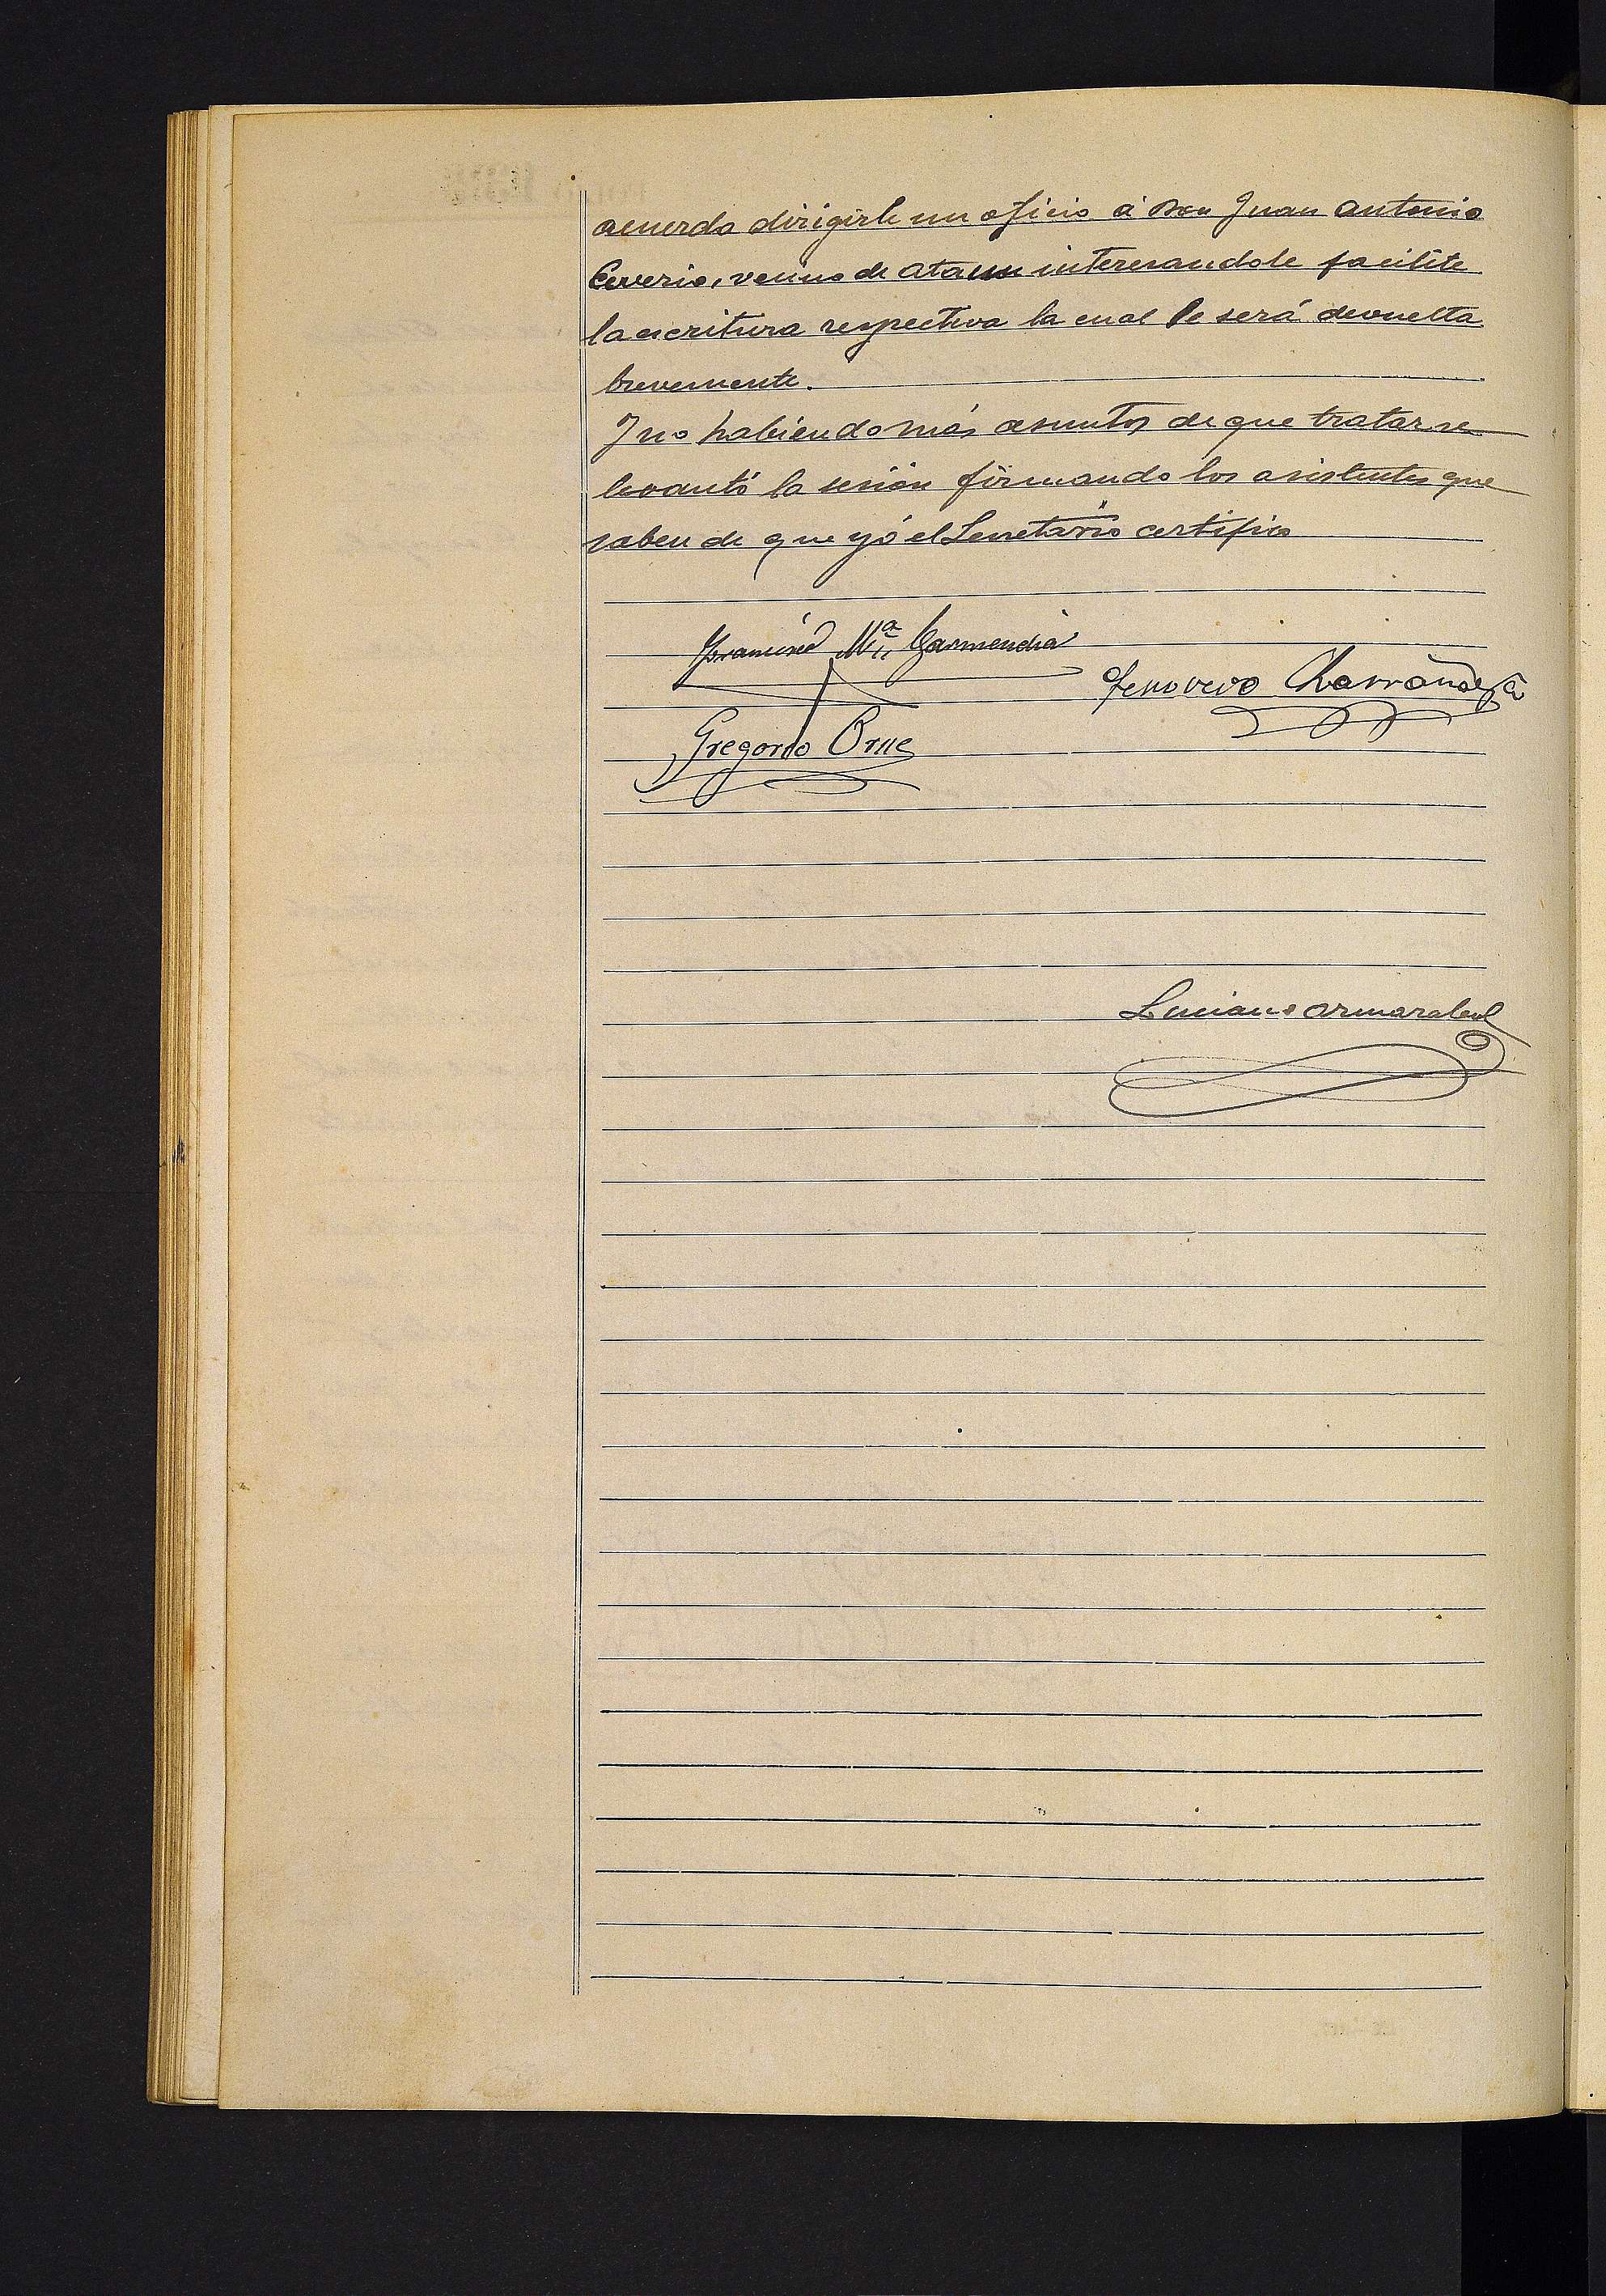 acuerda dirigirle un oficio á Don Juan Antonio
Ceverio, vecino de Ataun interesandole facilite
la escritura respectiva la cual le será devuelta
brevemente.
Y no habiendo más asuntos de que tratar se
levantó la sesión firmando los asistentes que
saben de que yó el Secretario certifico
Francisco Mª Garmendia
Genovevo Charrándeza
Gregorio Orue
Luciano Armarabeal